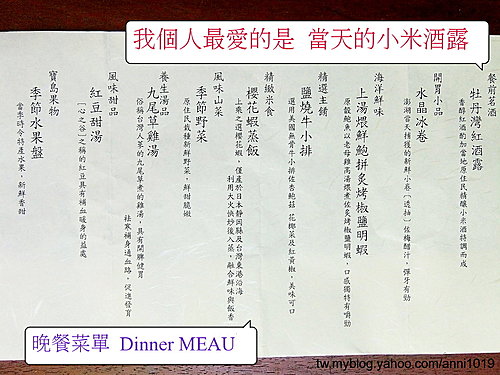 我個人最愛的是 當天的小米酒露
餐前茗酒
牡丹灣紅酒露
香醇紅酒酌加當地原住民精釀小米酒特調而成
開胃小品
水晶冰卷
澎湖當天捕獲的新鮮小卷(透抽)佐梅醋汁，彈牙有勁
海洋鮮味
上湯煨鮮鮑拼炙烤椒鹽明蝦
原穀鮑魚以老母雞高湯煨煮佐炙烤椒鹽明蝦，口感獨特有嚼勁
精選主鋪
鹽燒牛小排
選用美國無骨牛小排佐香鮑菇、花椰菜及紅黃椒，美味可口
精緻米食
櫻花蝦蒸飯
上乘之選櫻花蝦，僅產於日本靜岡縣及台灣東港沿海
利用大火快炒後入蒸，融合鮮味與飯香
風味山菜
季節野菜
原住民栽種新鮮野菜，鮮甜脆嫩
養生湯品
九尾草雞湯
俗稱台灣人蔘的九尾草煮的雞湯，具有開脾健胃
祛寒補身通血路，促進發育
風味甜品
紅豆甜湯
「心之谷」之稱的紅豆具有補血暖身的益處
寶島果物
季節水果盤
當季時令特產水果，新鮮香甜
晚餐菜單 Dinner MEAU
tw.myblog.yahoo.com/anni1019